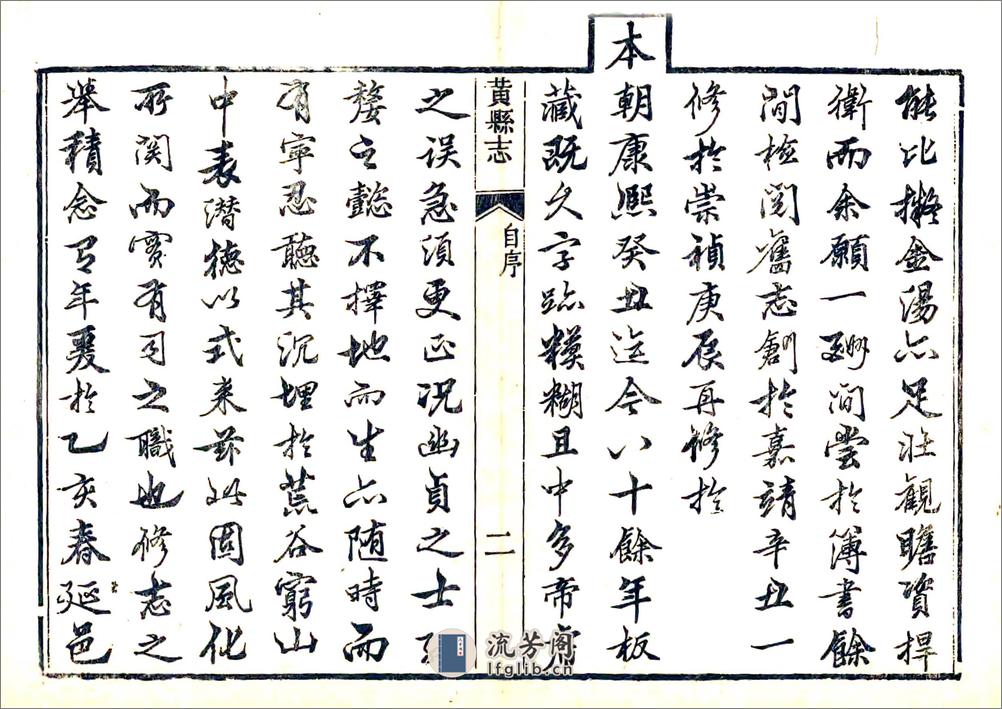 能比擬金湯亦足壯觀瞻資捍
衛而余願一酬間嘗於簿書餘
閒檢閱舊志創於嘉靖辛丑一
修於崇禎庚辰再修於
本朝康熙癸丑迄今八十餘年板
藏既久字跡糢糊且中多帝虎
黃縣志
自序
二
之误急須更正況幽貞之士
嫠之懿不擇地而生亦随時而
有寧忍聽其沉埋於荒谷窮山
中表潜德以式来茲此固風化
所関而實有司之職也修志之
舉積念有年爰於乙亥春延邑
流芳阁
lfglib.cn